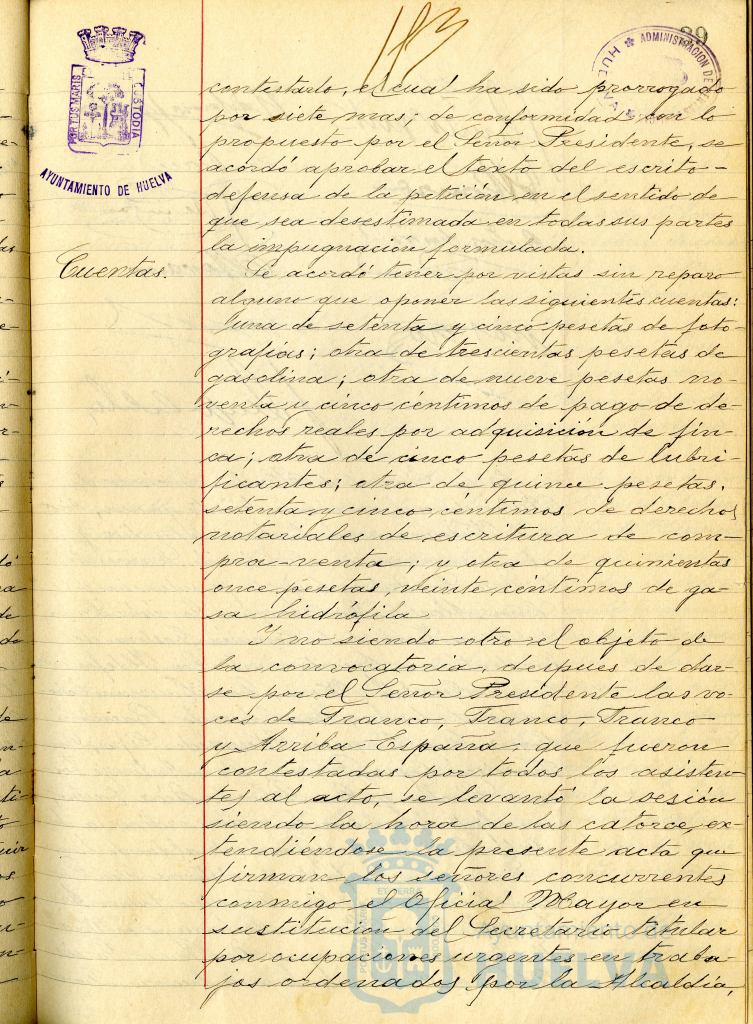 183
39
PORTUS MARIS
CUSTODIA
AYUNTAMIENTO DE HUELVA
ADMINISTRACION DE
HUELVA
contestarlo, el cual ha sido prorrogado
por siete mas; de conformidad con lo
propuesto por el Señor Presidente, se
acordó aprobar el texto del escrito-
defensa de la petición en el sentido de
que sea desestimada en todas sus partes
la impugnación formulada.
Cuentas.
Se acordó tener por vistas sin reparo
alguno que oponer las siguientes cuentas:
una de setenta y cinco pesetas de foto-
grafías; otra de trescientas pesetas de
gasolina; otra de nueve pesetas no-
venta y cinco céntimos de pago de de-
rechos reales por adquisición de fin-
ca; otra de cinco pesetas de lubri-
ficantes; otra de quince pesetas,
setenta y cinco céntimos de derechos
notariales de escritura de com-
pra-venta; y otra de quinientas
once pesetas, veinte céntimos de ga-
sa hidrófila
Y no siendo otro el objeto de
la convocatoria, despues de dar-
se por el Señor Presidente las vo-
ces de Franco, Franco, Franco
y Arriba España, que fueron
contestadas por todos los asisten-
tes al acto, se levantó la sesión
siendo la hora de las catorce, ex-
tendiéndose la presente acta que
firman los señores concurrentes
conmigo el Oficial Mayor en
sustitución del Secretario titular
por ocupaciones urgentes en traba-
jos ordenados por la Alcaldía,
Ayuntamiento de
HUELVA